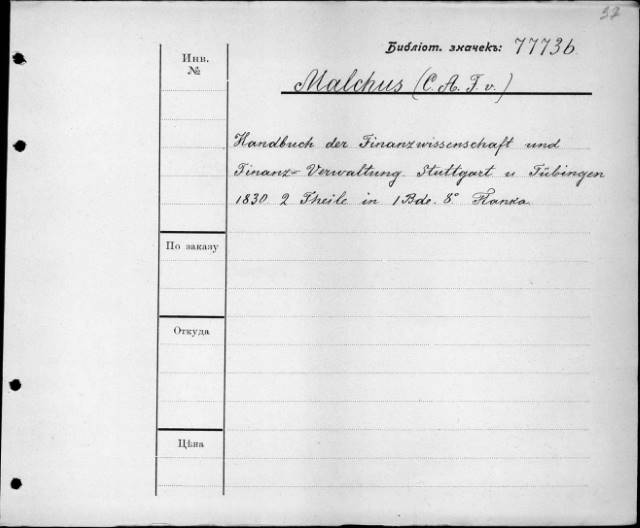 37
Библіот. значекъ: 77736
Malchus (C. A. F. v.)
Handbuch der Finanzwissenschaft und
Finanz= Verwaltung. Stuttgart u Tübingen
1830. 2 Theile in 1 Bde. 8°
Инв.
№
По заказу
Откуда
Цѣна